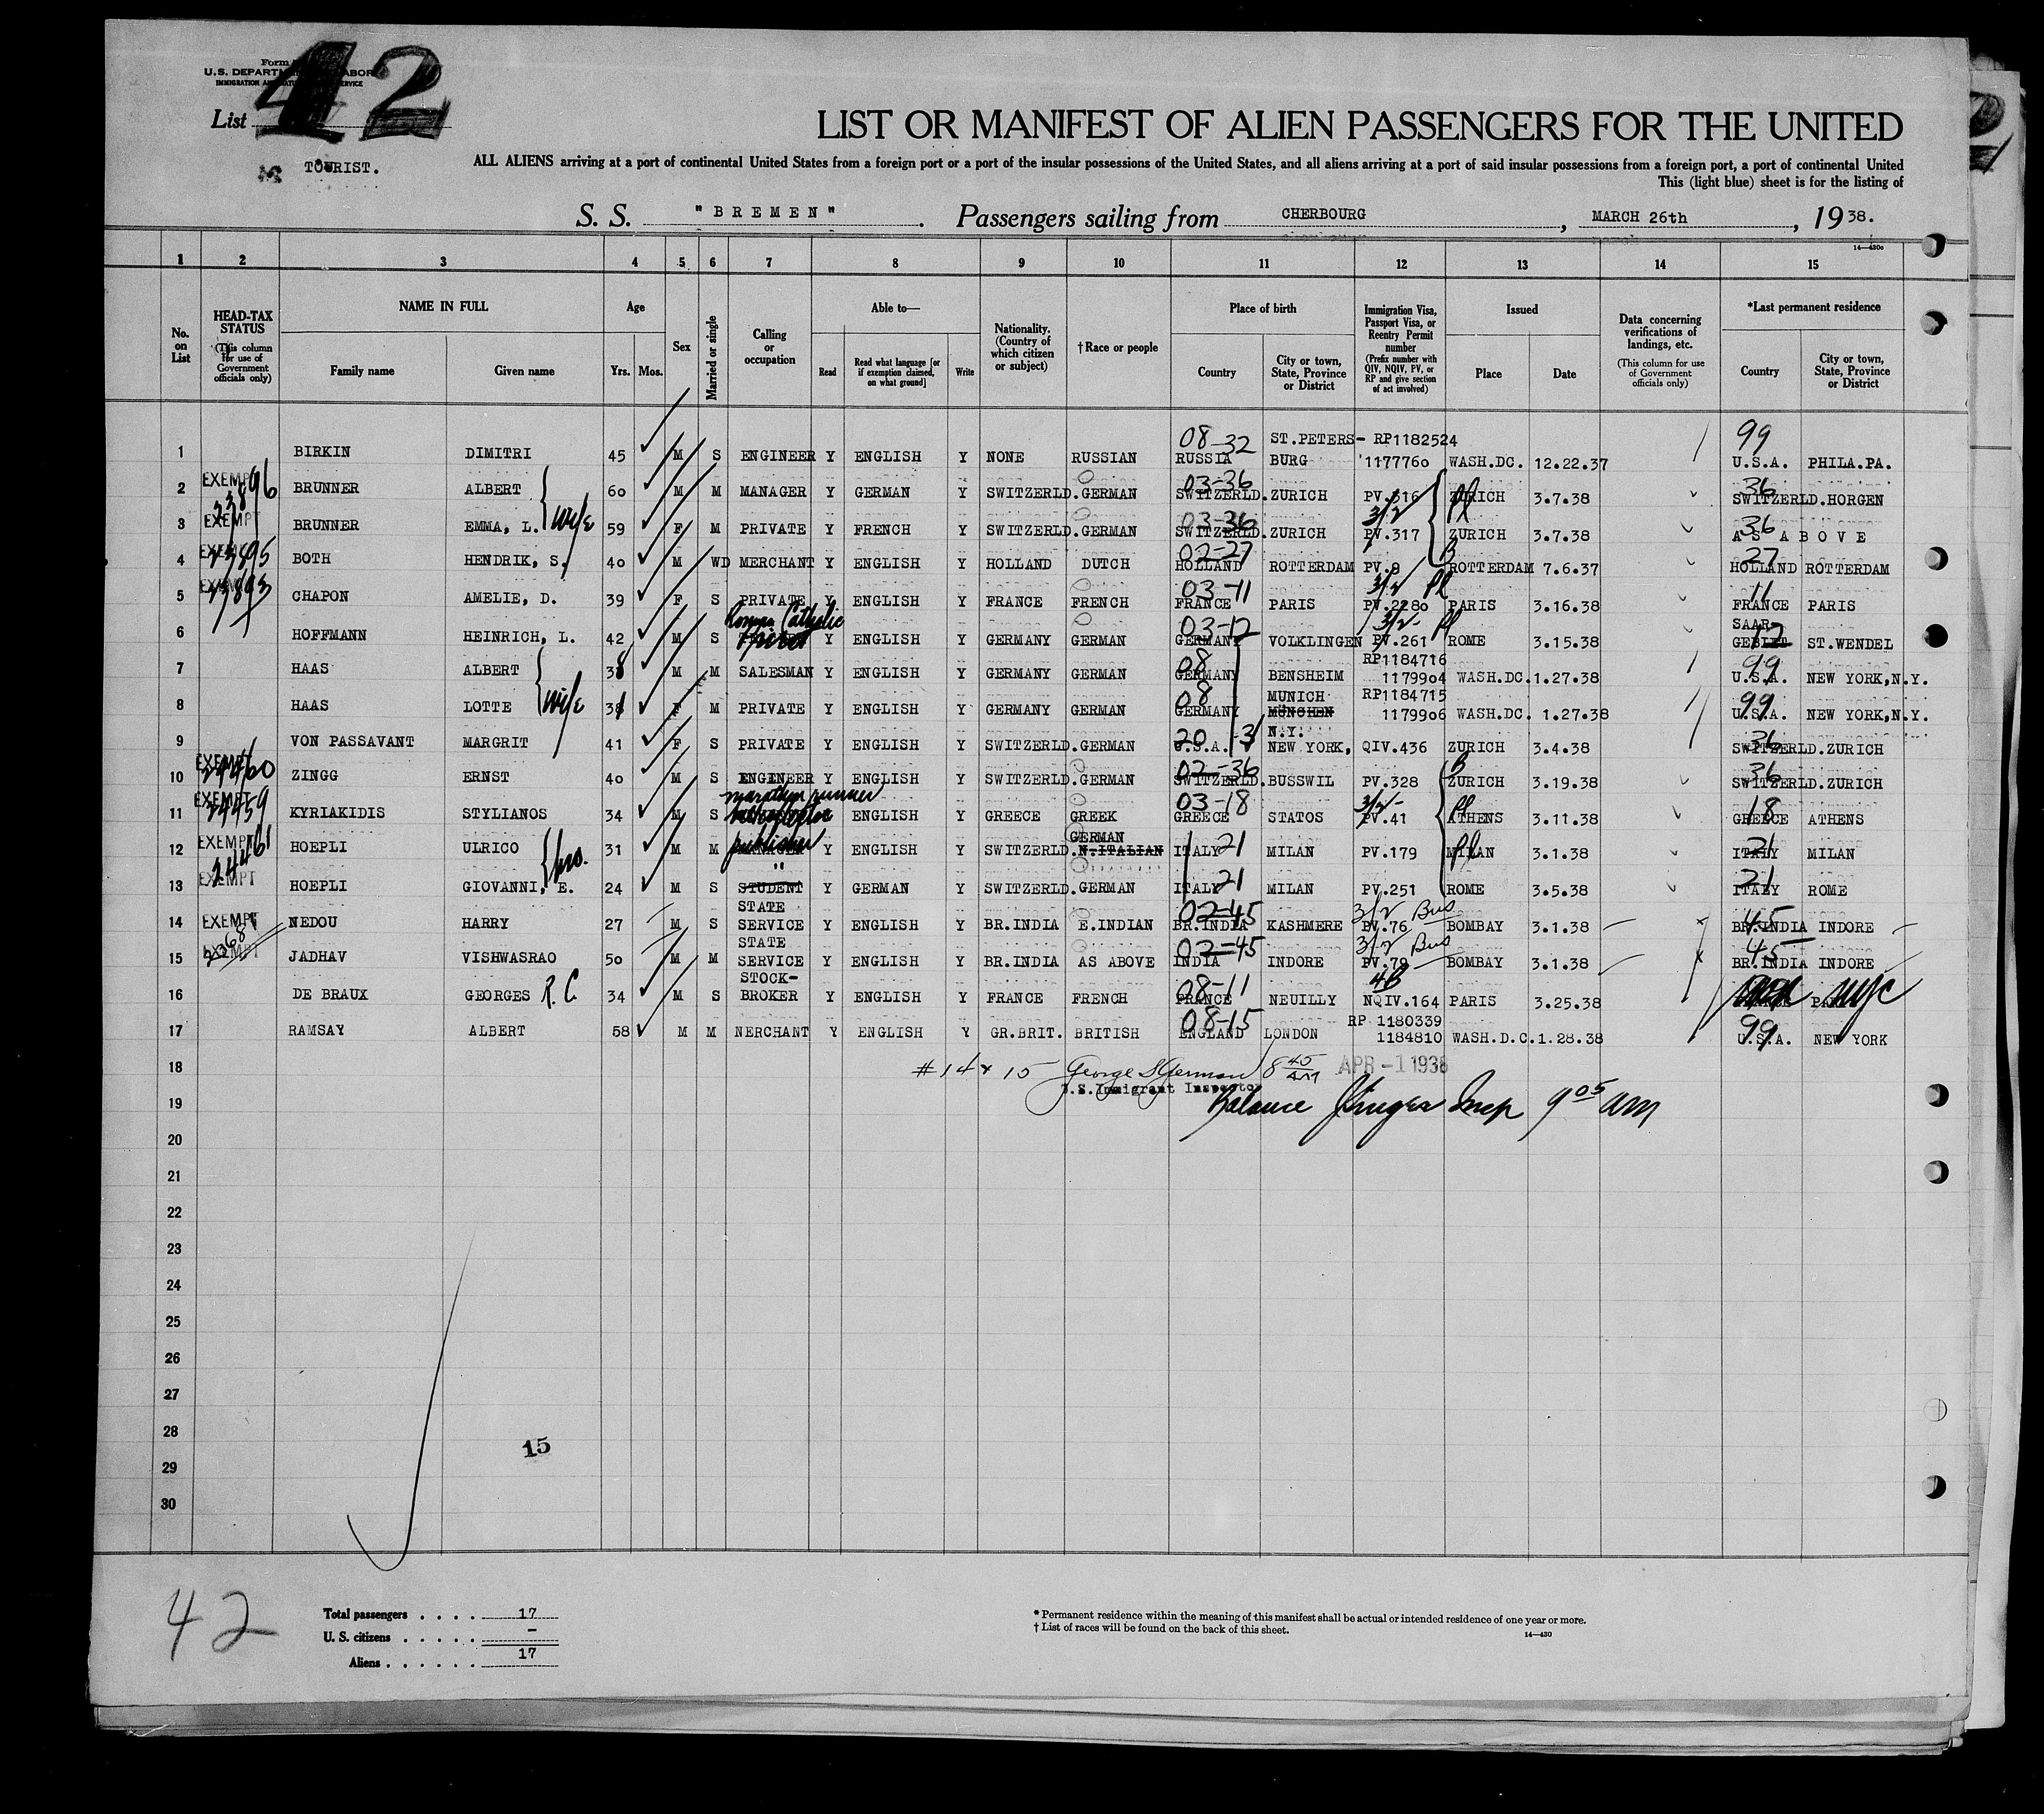 Form
U.S. DEPARTM ABOR
IMMIGRATION AN SERVICE
List 42
TOURIST.
LIST OR MANIFEST OF ALIEN PASSENGERS FOR THE UNITED
ALL ALIENS arriving at a port of continental United States from a foreign port or a port of the insular possessions of the United States, and all aliens arriving at a port of said insular possessions from a foreign port, a port of continental United
This (light blue) sheet is for the listing of
S. S. "BREMEN". Passengers sailing from CHERBOURG, MARCH 26th, 1938.
14—430c
1 2 3 4 5 6 7 8 9 10 11 12 13 14 15
No. on List
HEAD-TAX STATUS (This column for use of Government officials only)
NAME IN FULL Family name Given name
Age Yrs. Mos.
Sex
Married or single
Calling or occupation
Able to— Read Read what language [or if exemption claimed, on what ground] Write
Nationality. (Country of which citizen or subject)
†Race or people
Place of birth Country City or town, State, Province or District
Immigration Visa, Passport Visa, or Reentry Permit number (Prefix number with QIV, NQIV, PV, or RP and give section of act involved)
Issued Place Date
Data concerning verifications of landings, etc. (This column for use of Government officials only)
*Last permanent residence Country City or town, State, Province or District
1 BIRKIN DIMITRI 45 M S ENGINEER Y ENGLISH Y NONE RUSSIAN 08-32 RUSSIA ST.PETERS-BURG RP1182524 1177760 WASH.DC. 12.22.37 99 U.S.A. PHILA.PA.
2 EXEMPT 23896 BRUNNER ALBERT 60 M M MANAGER Y GERMAN Y SWITZERLD. GERMAN 03-36 SWITZERLD. ZURICH PV.316 ZURICH 3.7.38 36 SWITZERLD. HORGEN
3 EXEMPT BRUNNER EMMA, L. wife 59 F M PRIVATE Y FRENCH Y SWITZERLD. GERMAN 03-36 SWITZERLD. ZURICH 3/2 PV.317 ZURICH 3.7.38 36 AS ABOVE
4 EXEMPT 23895 BOTH HENDRIK, S. 40 M WD MERCHANT Y ENGLISH Y HOLLAND DUTCH 02-27 HOLLAND ROTTERDAM PV.8 B ROTTERDAM 7.6.37 27 HOLLAND ROTTERDAM
5 EXEMPT 23893 CHAPON AMELIE, D. 39 F S PRIVATE Y ENGLISH Y FRANCE FRENCH 03-11 FRANCE PARIS 3/2 Pl PV.2280 PARIS 3.16.38 11 FRANCE PARIS
6 HOFFMANN HEINRICH, L. 42 M S Roman Catholic Priest Y ENGLISH Y GERMANY GERMAN 03-12 GERMANY VOLKLINGEN 3/2 Pl PV.261 ROME 3.15.38 12 SAAR GEBIET ST.WENDEL
7 HAAS ALBERT 38 M M SALESMAN Y ENGLISH Y GERMANY GERMAN 08 GERMANY BENSHEIM RP1184716 1179904 WASH.DC. 1.27.38 99 U.S.A. NEW YORK,N.Y.
8 HAAS LOTTE wife 31 F M PRIVATE Y ENGLISH Y GERMANY GERMAN 08 GERMANY MUNICH MÜNCHEN RP1184715 1179906 WASH.DC. 1.27.38 99 U.S.A. NEW YORK,N.Y.
9 VON PASSAVANT MARGRIT 41 F S PRIVATE Y ENGLISH Y SWITZERLD. GERMAN 20 U.S.A. N.Y. NEW YORK, QIV.436 ZURICH 3.4.38 36 SWITZERLD. ZURICH
10 EXEMPT 24460 ZINGG ERNST 40 M S ENGINEER Y ENGLISH Y SWITZERLD. GERMAN 02-36 SWITZERLD. BUSSWIL PV.328 B ZURICH 3.19.38 36 SWITZERLD. ZURICH
11 EXEMPT 24459 KYRIAKIDIS STYLIANOS 34 M S marathon runner ENGLISH Y GREECE GREEK 03-18 GREECE STATOS 3/2 PV.41 Pl ATHENS 3.11.38 18 GREECE ATHENS
12 EXEMPT 24461 HOEPLI ULRICO 31 M M publisher MANAGER Y ENGLISH Y SWITZERLD. GERMAN N.ITALIAN ITALY 21 MILAN PV.179 Pl MILAN 3.1.38 21 ITALY MILAN
13 EXEMPT HOEPLI GIOVANNI, E. bro. 24 M S " STUDENT Y GERMAN Y SWITZERLD. GERMAN ITALY 21 MILAN PV.251 ROME 3.5.38 21 ITALY ROME
14 EXEMPT NEDOU HARRY 27 M S STATE SERVICE Y ENGLISH Y BR.INDIA E.INDIAN 02-45 BR.INDIA KASHMERE 3/2 Bus PV.76 BOMBAY 3.1.38 45 BR.INDIA INDORE
15 EXEMPT JADHAV VISHWASRAO 50 M M STATE SERVICE Y ENGLISH Y BR.INDIA AS ABOVE 02-45 INDIA INDORE 3/2 Bus PV.79 BOMBAY 3.1.38 45 BR.INDIA INDORE
16 DE BRAUX GEORGES R.C. 34 M S STOCK-BROKER Y ENGLISH Y FRANCE FRENCH 08-11 FRANCE NEUILLY 4B NQIV.164 PARIS 3.25.38 nyc
17 RAMSAY ALBERT 58 M M NERCHANT Y ENGLISH Y GR.BRIT. BRITISH 08-15 ENGLAND LONDON RP 1180339 1184810 WASH.D.C. 1.28.38 99 U.S.A. NEW YORK
18 #14 & 15 George S German 8 45 AM APR -1 1938
U.S. Immigrant Inspector
19 Balance Insp 9 05 am
20
21
22
23
24
25
26
27
28
29
30
15
42
Total passengers . . . . 17
U. S. citizens . . . . . –
Aliens . . . . . . 17
* Permanent residence within the meaning of this manifest shall be actual or intended residence of one year or more.
† List of races will be found on the back of this sheet.
14—430